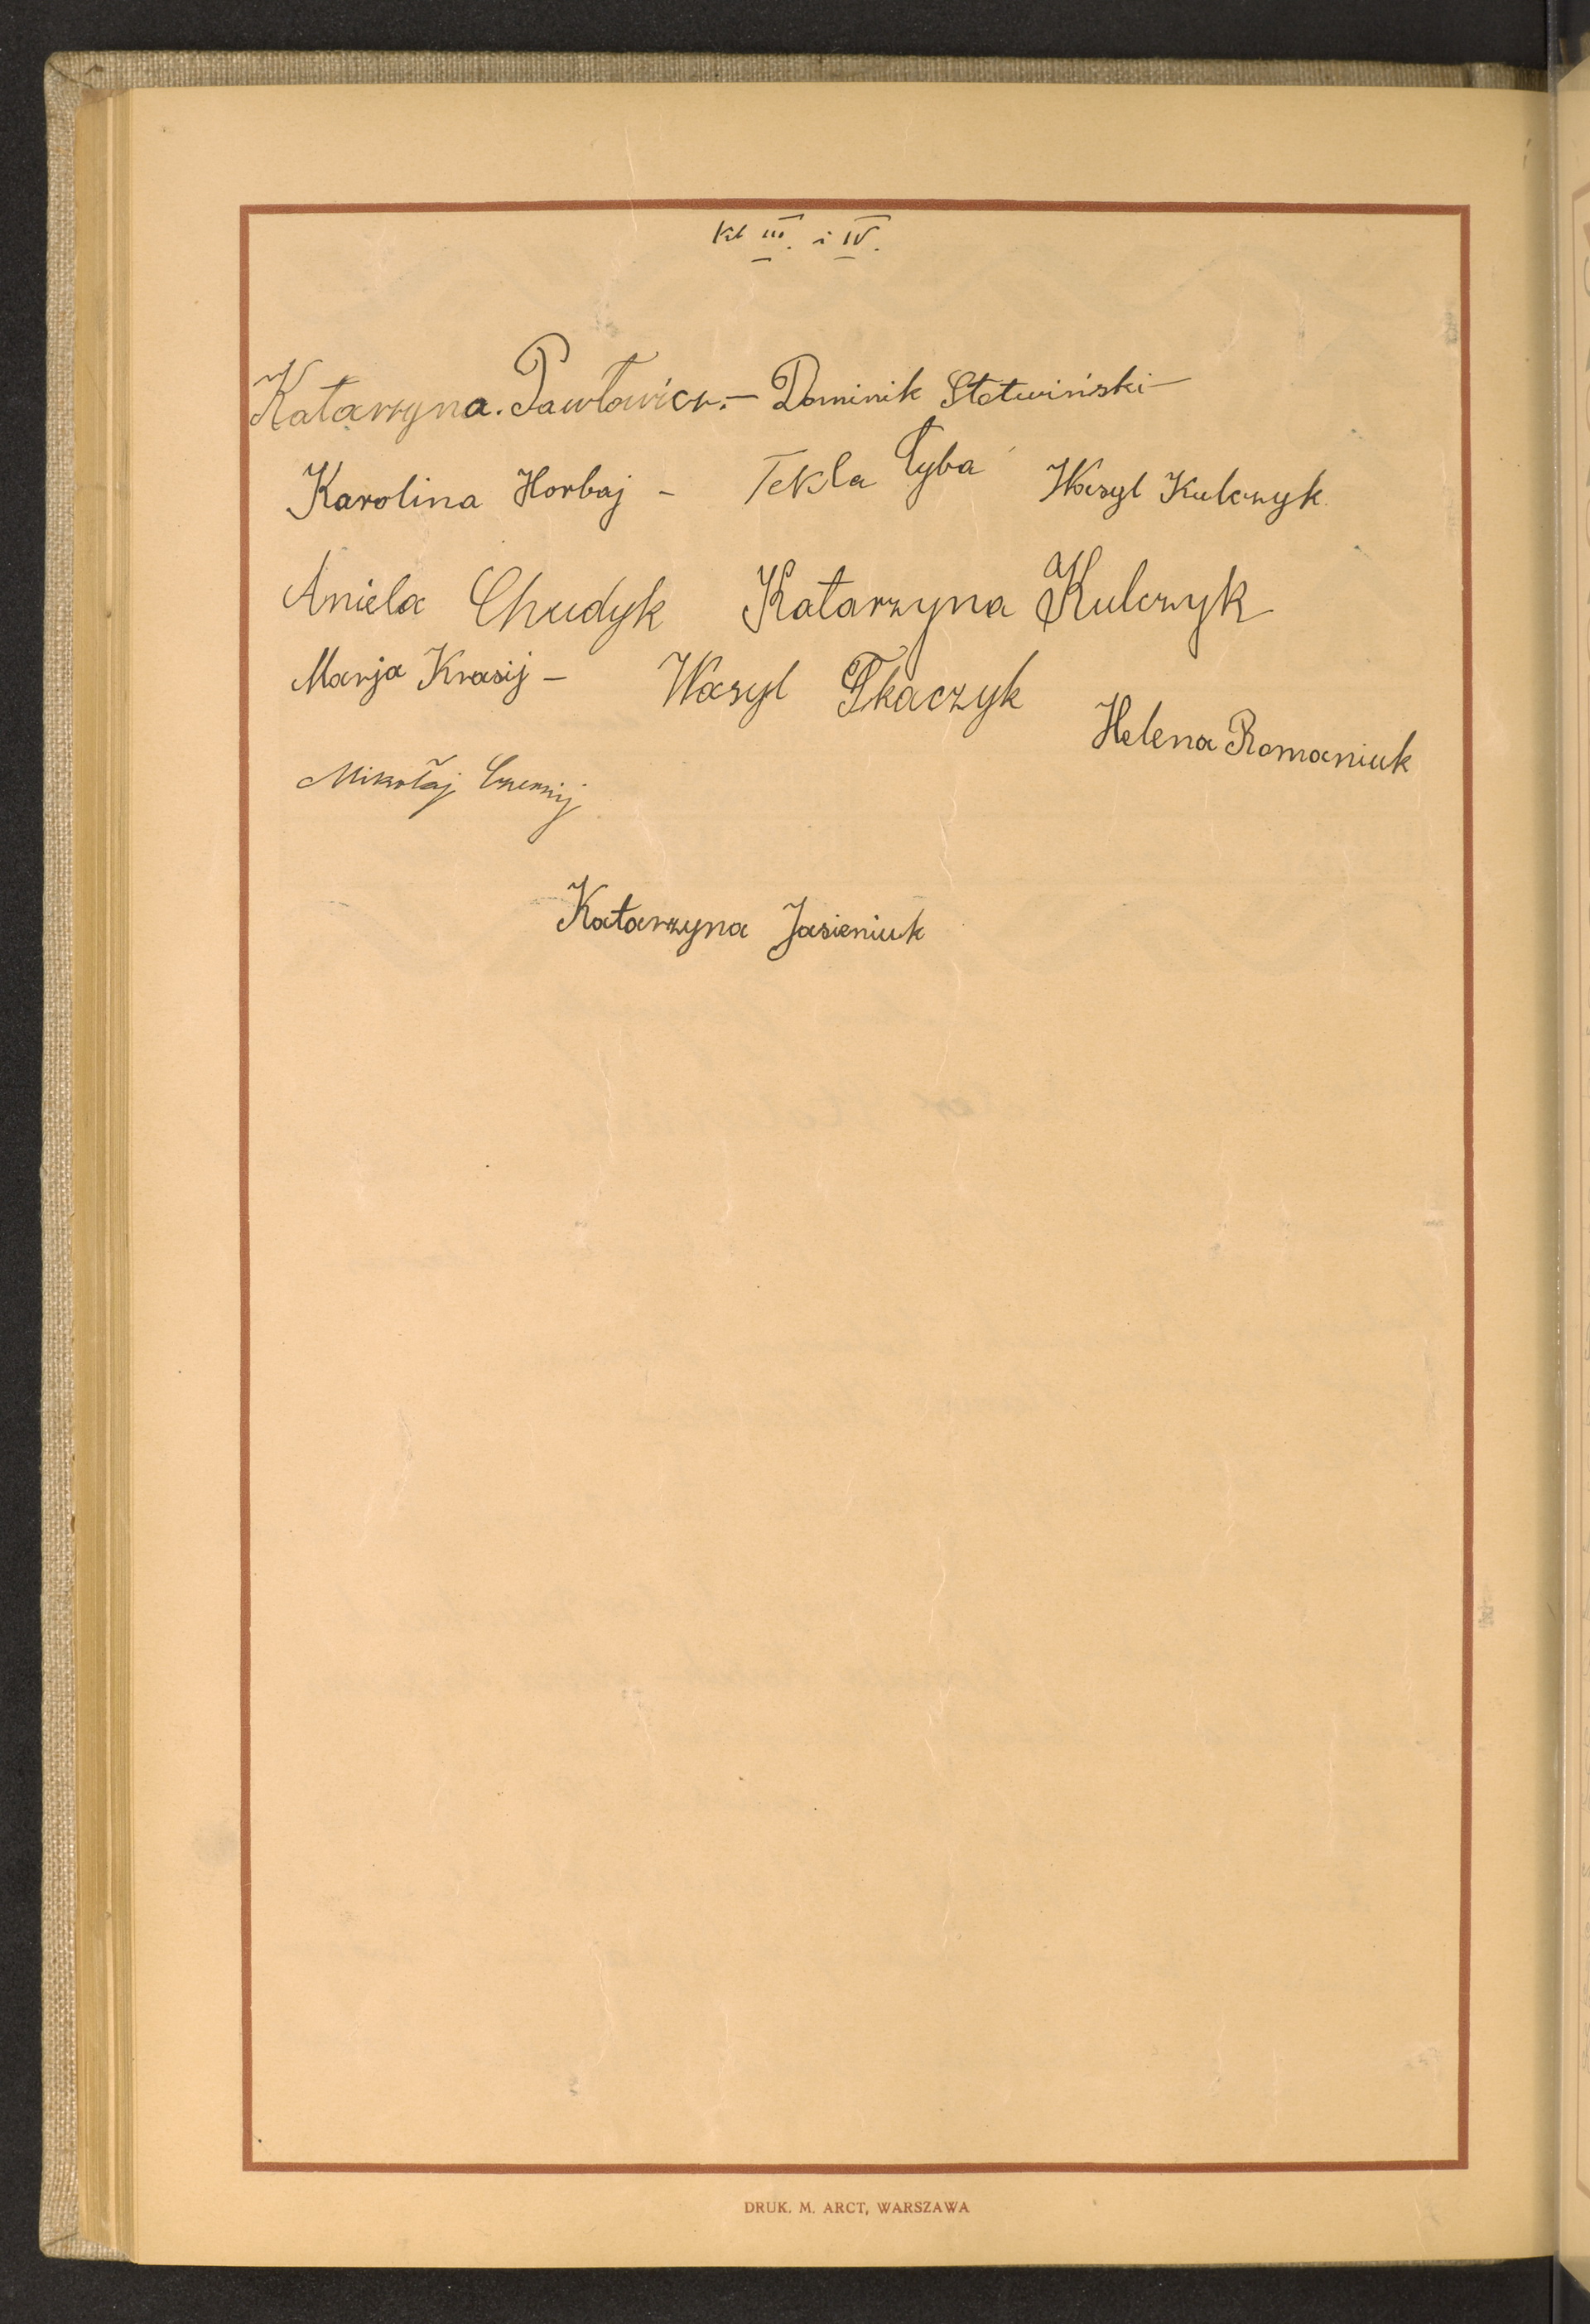 Kl III. i IV.
Katarzyna. Pawłowicz. – Dominik Stotwiński –
Karolina Horbaj – Tekla Łyba Wasyl Kulczyk
Aniela Chudyk Katarzyna Kulczyk
Marja Krasij – Wasyl Tkaczyk
Helena Romaniuk
Mikołaj Czernij
Katarzyna Jasieniuk
DRUK. M. ARCT, WARSZAWA